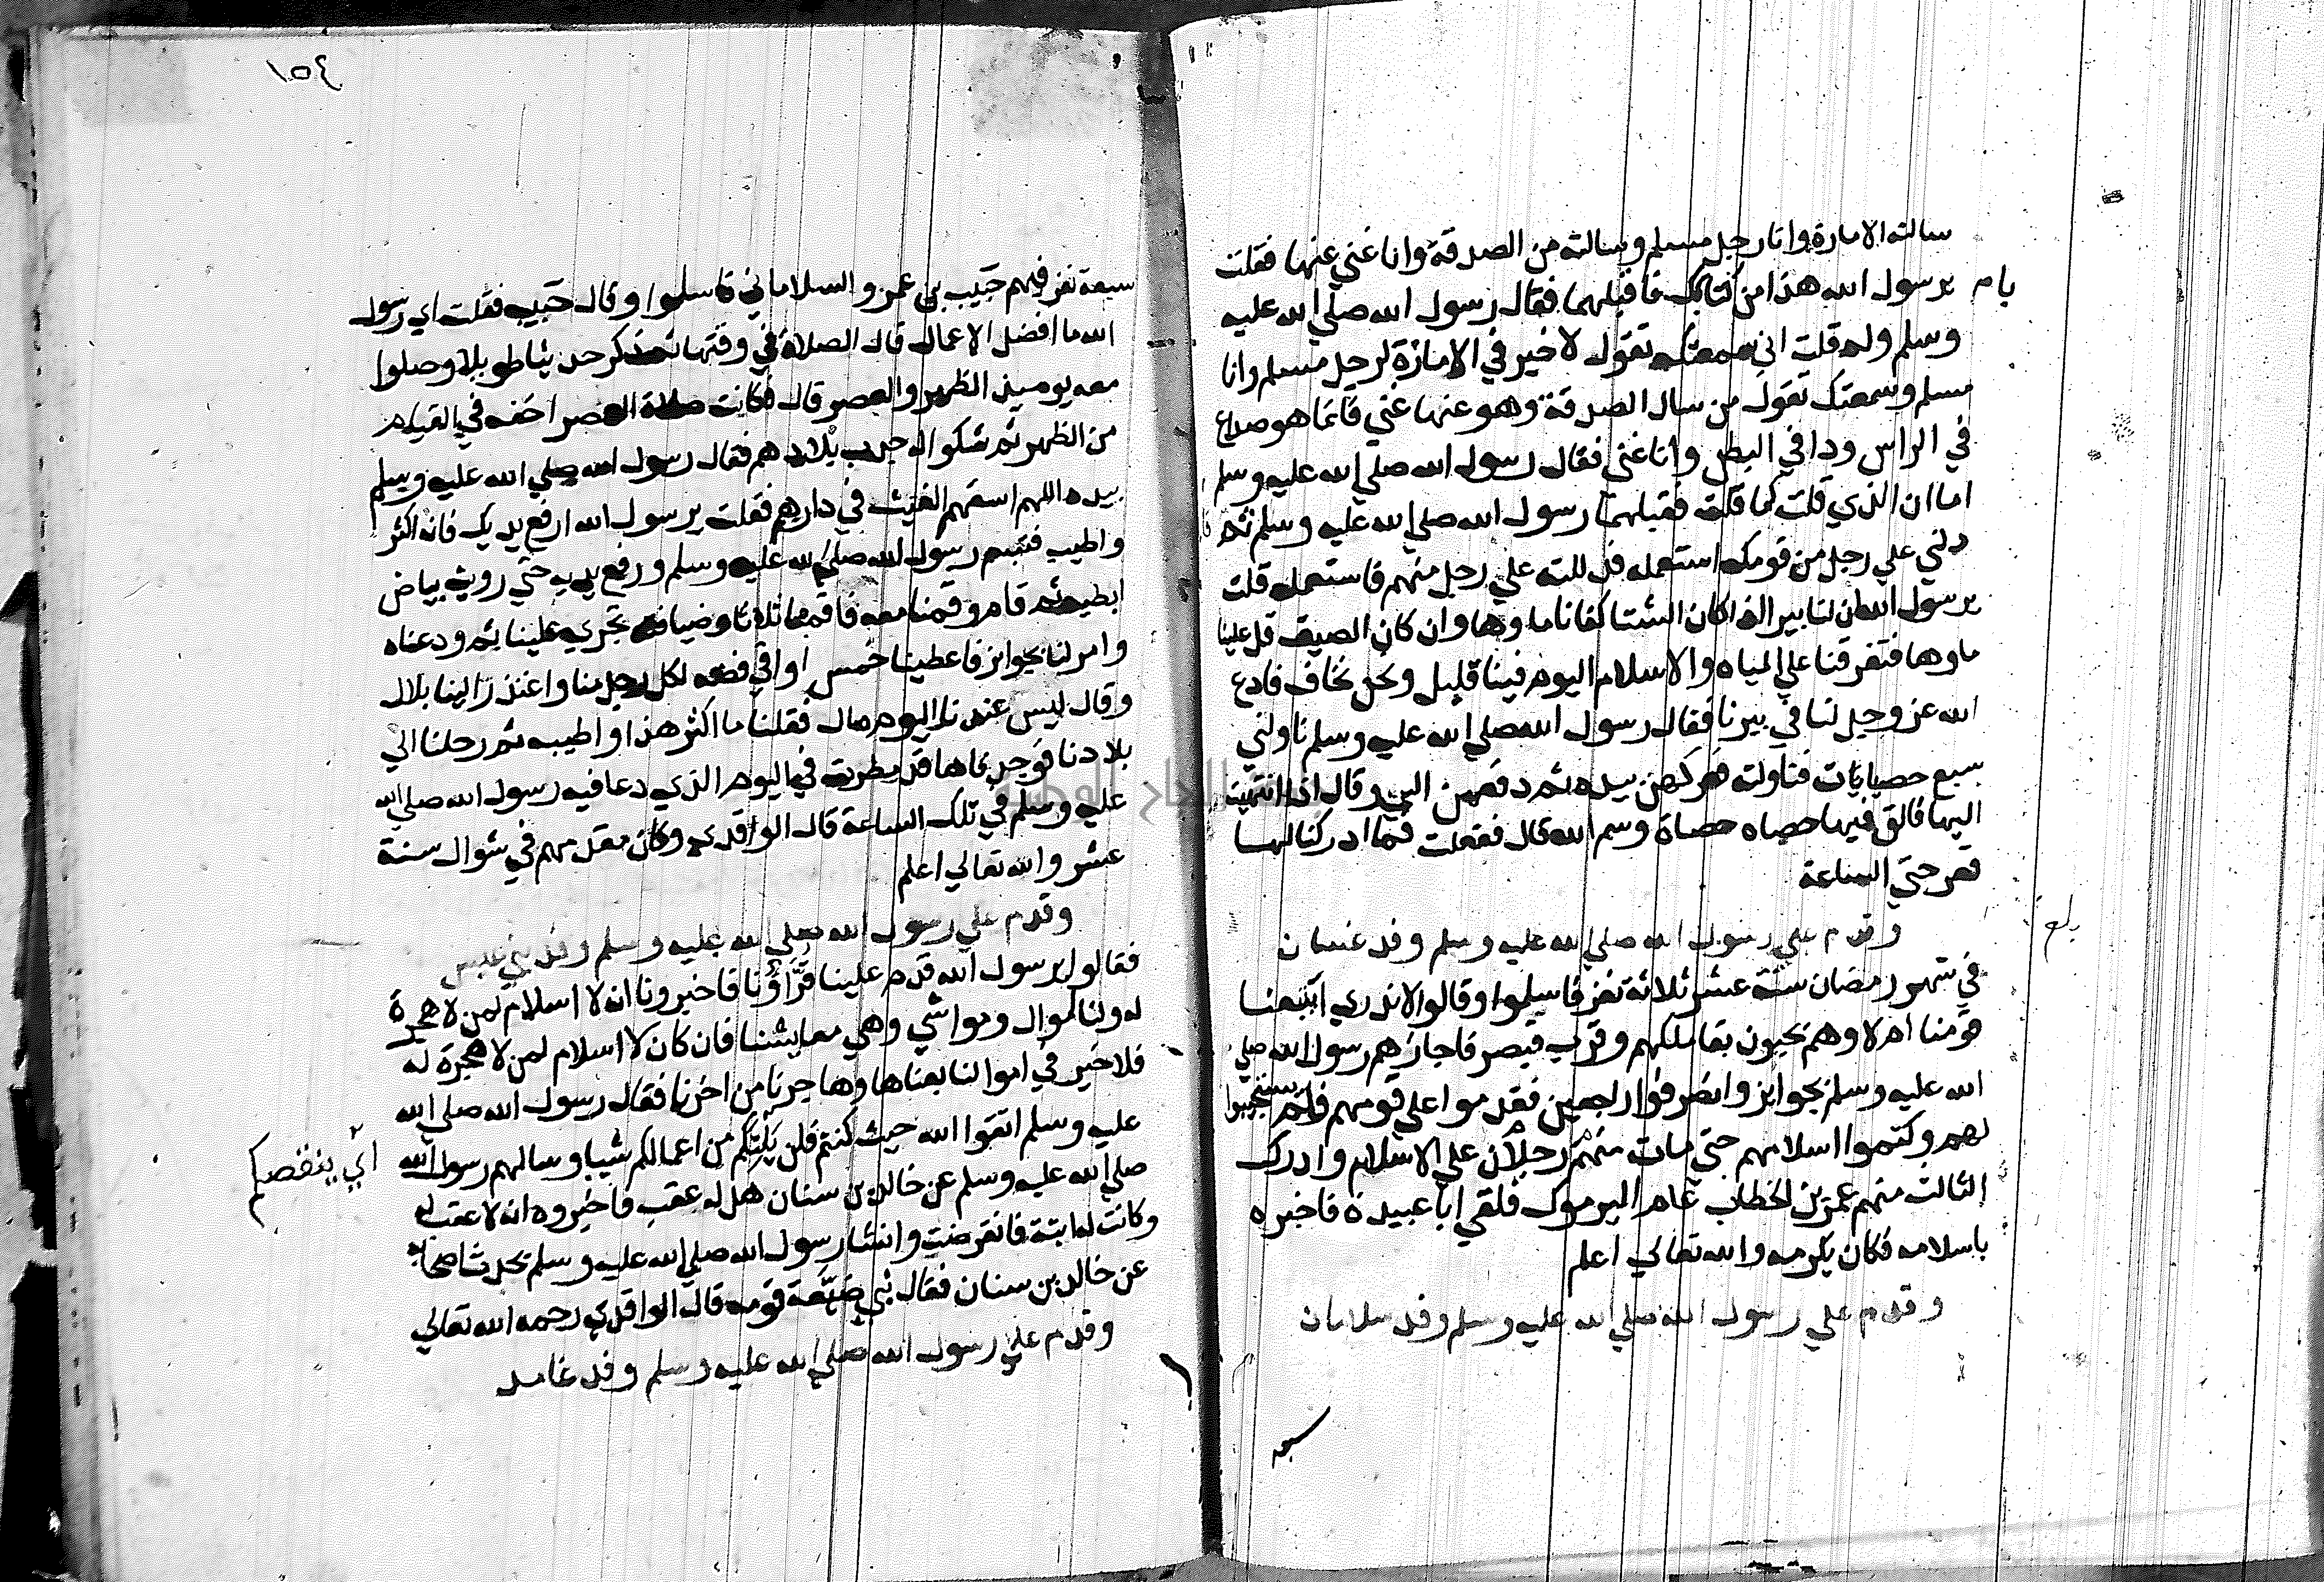 سالته الامارة وانا رجل مسلم وسالته من الصدقة وانا غني عنها فقلت
يام
يرسول الله هذا من كتابك فاقبلهما فقال رسول الله صلي الله عليه
وسلم وله قلت اني سمعتك تقول لا خير في الامارة لرجل مسلم وانا
مسلم وسمعتك تقول من سال الصدقة وهو عنها غني فانما هو صداع
في الراس ودا في البطن وانا غني فقال رسول الله صلي الله عليه وسلم
اما ان الذي قلت كما قلت فقبلهما رسول الله صلي الله عليه وسلم ثم
دلني علي رجل من قومك استعمله فدللته علي رجل منهم فاستعمله قلت
يرسول الله ان لنا بير اذا كان الشتا كفانا ماوها وان كان الصيف قل علينا
ماوها فتفرقنا علي المياه والاسلام اليوم فينا قليل ونحن نخاف فادع
الله عز وجل لنا في بيرنا فقال رسول الله صلي الله عليه وسلم ناولني
سبع حصيايات فناولته فعركهن بيده ثم دفعهن الي وقال اذا انتهيت
اليها فالق فيها حصاه حصاة وسم الله قال ففعلت فما ادركنا لها
قعر حتي الساعة
وقدم علي رسول الله صلي الله عليه وسلم وفد غسان
في شهر رمضان سنة عشر ثلاثة نفر فاسلموا وقالوا لا ندري ايتبعنا
قومنا ام لا وهم يحبون بقا ملكهم وقرب قيصر فاجازهم رسول الله صلي
الله عليه وسلم بجوايز وانصرفوا راجعين فقدموا علي قومهم فلم يستجيبوا
لهم وكتموا اسلامهم حتي مات منهم رجلان علي الاسلام وادرك
الثالث منهم عمر بن الخطاب عام اليرموك فلقي ابا عبيدة فاخبره
باسلامه فكان يكرمه والله تعالي اعلم
وقدم علي رسول الله صلي الله عليه وسلم وفد سلامان
سبعه
١٥٤
سبعة نفر فيهم حبيب بن عمرو السلاماني فاسلموا وقال حبيب فقلت اي رسول
الله ما افضل الاعمال قال الصلاة في وقتها ثم ذكر حديثا طويلا وصلوا
معه يوميذ الظهر والعصر قال فكانت صلاة العصر اخف في القيام
من الظهر ثم شكوا اليه جدب بلادهم فقال رسول الله صلي الله عليه وسلم
بيده اللهم اسقهم الغيث في دارهم فقلت يرسول الله ارفع يديك فانه اكثر
واطيب فتبسم رسول الله صلي الله عليه وسلم ورفع يديه حتي رويت بياض
ابطيه ثم قام وقمنا معه فاقمنا ثلاثا وضيافته تجري علينا ثم ودعناه
وامر لنا بجوايز فاعطينا خمس اواقي فضه لكل رجل منا واعتذر الينا بلال
وقال ليس عندنا اليوم مال فقلنا ما اكثر هذا واطيبه ثم رحلنا الي
بلادنا فوجدناها قد مطرت في اليوم الذي دعا فيه رسول الله صلي الله
عليه وسلم في تلك الساعة قال الواقدي وكان مقدمهم في شوال سنة
عشر والله تعالي اعلم
وقدم علي رسول الله صلي الله عليه وسلم وفد بني عبس
فقالوا يرسول الله قدم علينا قراونا فاخبرونا انه لا اسلام لمن لا هجرة
له ولنا اموال ومواشي وهي معايشنا فان كان لا اسلام لمن لا هجرة له
فلا خير في اموالنا بعناها وهاجرنا من اخرنا فقال رسول الله صلي الله
عليه وسلم اتقوا الله حيث كنتم فلن يلتكم من اعمالكم شييا وسالهم رسول الله
اي ينقصكم
صلي الله عليه وسلم عن خالد بن سنان هل له عقب فاخبروه انه لا عقب له
وكانت له ابنة فانقرضت وانشا رسول الله صلي الله عليه وسلم يحدث اصحابه
عن خالد بن سنان فقال نبي ضيعه قومه قال الواقدي رحمه الله تعالي
وقدم علي رسول الله صلي الله عليه وسلم وفد غامد